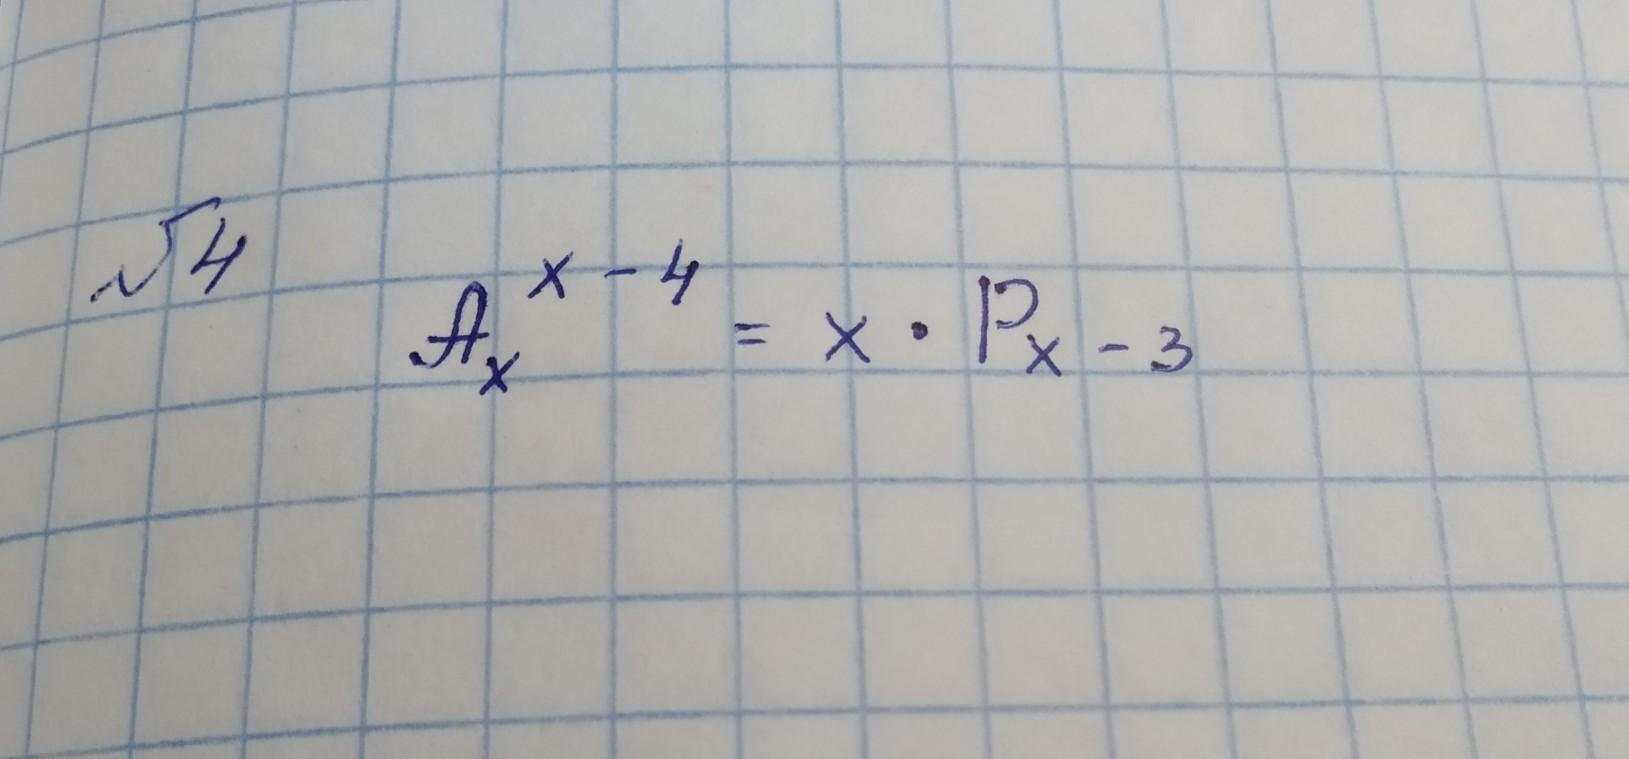 √4
A_x^{x-4} = x · P_{x-3}